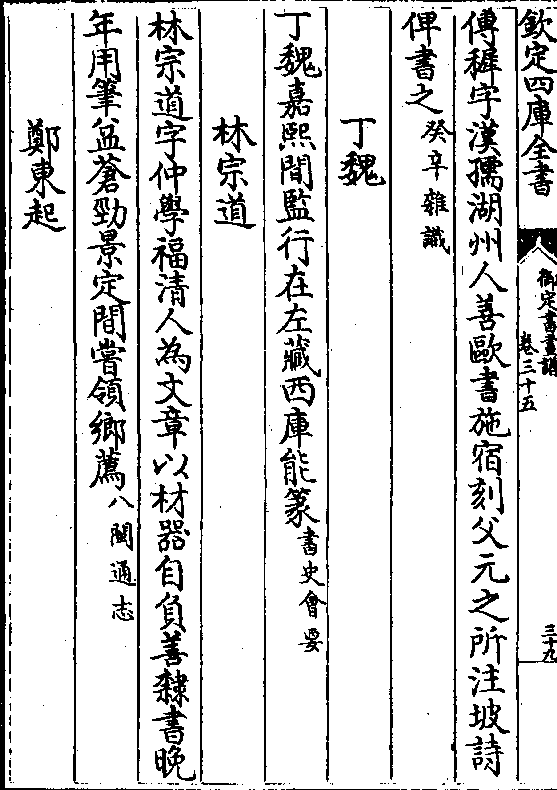 欽定四庫全書
御定書畫譜
卷三十五
三十九
傅穉字漢孺湖州人善歐書施宿刻父元之所注坡詩
俾書之癸辛雜識
丁魏
丁魏嘉熙間監行在左藏西庫能篆書史會要
林宗道
林宗道字仲學福清人為文章以材器自負善隸書晚
年用筆益蒼勁景定間嘗領鄉薦八閩通志
鄭東起